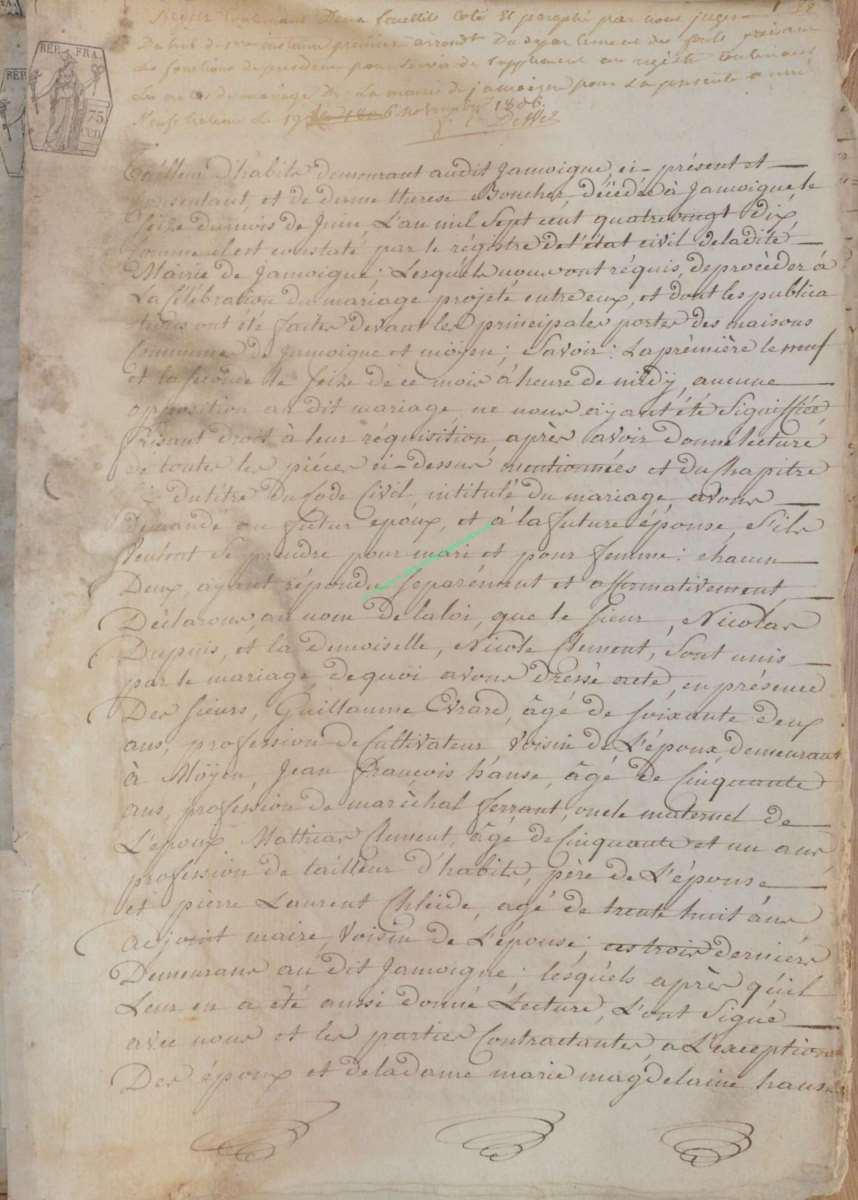 contenant deux feuillets coté et paraphé par nous juge
Du trib. de 1re instance premier arrondt. Du departement des forets faisant
Les fonctions de president pour servir de supplement au registre contenant
Les actes de mariage de La mairie de jamoigne pour La presente année
Neufchateau Le 19 novembre 1806.
REP. FRA.
75
CEN
Tailleur D'habits demeurant audit Jamoigne, ci-présent et
consentant, et de dame therese Boncher décédée à Jamoigne, le
Seize du mois de Juin, L'an mil Sept cent quatrevingt dix,
comme il est constaté par le régistre de l'état civil deladite
Mairie de Jamoigne: Lesquels nous ont réquis, de procèder à
La Célébration du mariage projeté entre eux, et dont les publica
tions ont été faites devant les principales portes des maisons
Communes de Jamoigne et moÿen; Savoir: La prémière le neuf
et la seconde le Seize de ce mois à heure de midÿ, aucune
opposition au dit mariage ne nous aÿant été Signiffiée
Faisant droit à leur réquisition après avoir donné lecture
de toutes les piéces ci-dessus mentionnées et du Chapitre
du titre du Code Civil intitulé du mariage avons
demandé au futur époux, et à la future épouse, S'ils
Veulent Se prendre pour mari et pour femme: chacun
Deux, ayant répondu Séparément et affirmativement,
Déclarons, au nom de la loi, que le Sieur, Nicolas
Dupuis, et la demoiselle, Nicole Clement, Sont unis
par le mariage de quoi avons Dressé acte, en présence
Des Sieurs, Guillaume Evrard, âgé de Soixante deux
ans, profession de Cultivateur Voisin de L'époux demeurant
à Moÿen, Jean François hanse, âgé de Cinquante
ans, profession de maréchal ferrant, oncle maternel de
L'époux Mathias Clement, âgé de Cinquante et un ans
profession de tailleur d'habits, père de L'épouse
et pierre Laurent Chleide, agé de trente huit ans
adjoint maire, Voisin de L'épouse; ces trois derniers
Demeurans au dit Jamoigne: lesquels après qu'il
Leur en a été aussi donné Lecture, L'ont Signé
avec nous et les parties Contractantes a L'exception
Des époux et de la dame marie magdelaine hanse